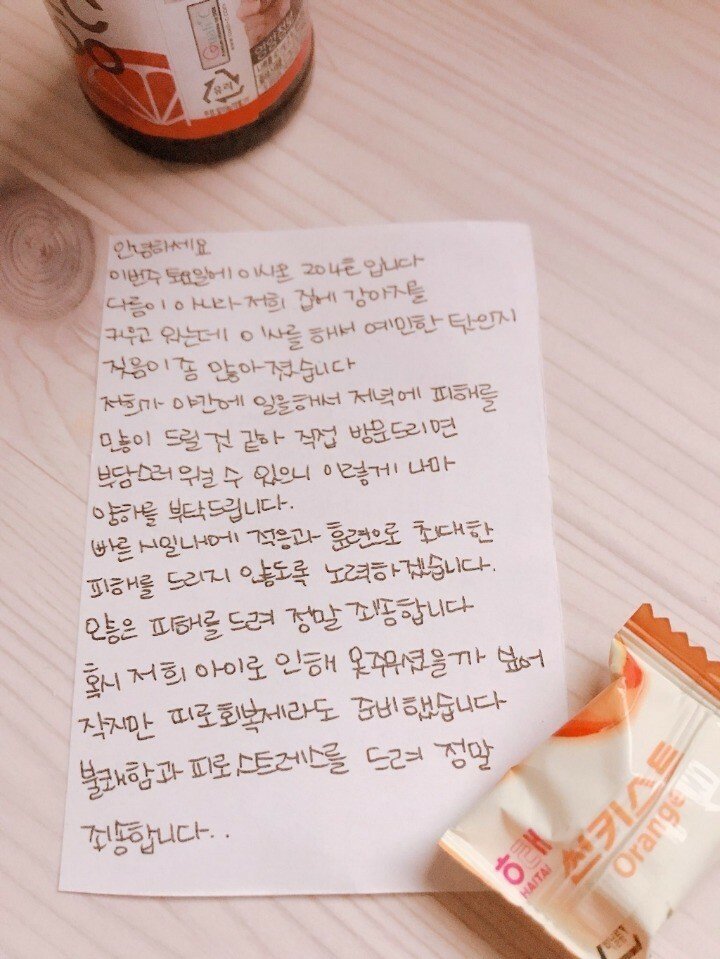 유리
안녕하세요
이번주 토요일에 이사온 204호 입니다
다름이 아니라 저희 집에 강아지를
키우고 있는데 이사를 해서 예민한 탓인지
짖음이 좀 많아 졌습니다
저희가 야간에 일을해서 저녁에 피해를
많이 드릴 것 같아 직접 방문드리면
부담스러 워하실 수 있으니 이렇게 나마
양해를 부탁드립니다.
빠른 시일내에 적응과 훈련으로 최대한
피해를 드리지 않도록 노력하겠습니다.
오늘은 피해를 드려 정말 죄송합니다
혹시 저희 아이로 인해 못주무셨을까 싶어
작지만 피로회복제라도 준비했습니다
불쾌함과 피로,스트레스를 드려 정말
죄송합니다..
해태
HAITAI
썬키스트
Orange